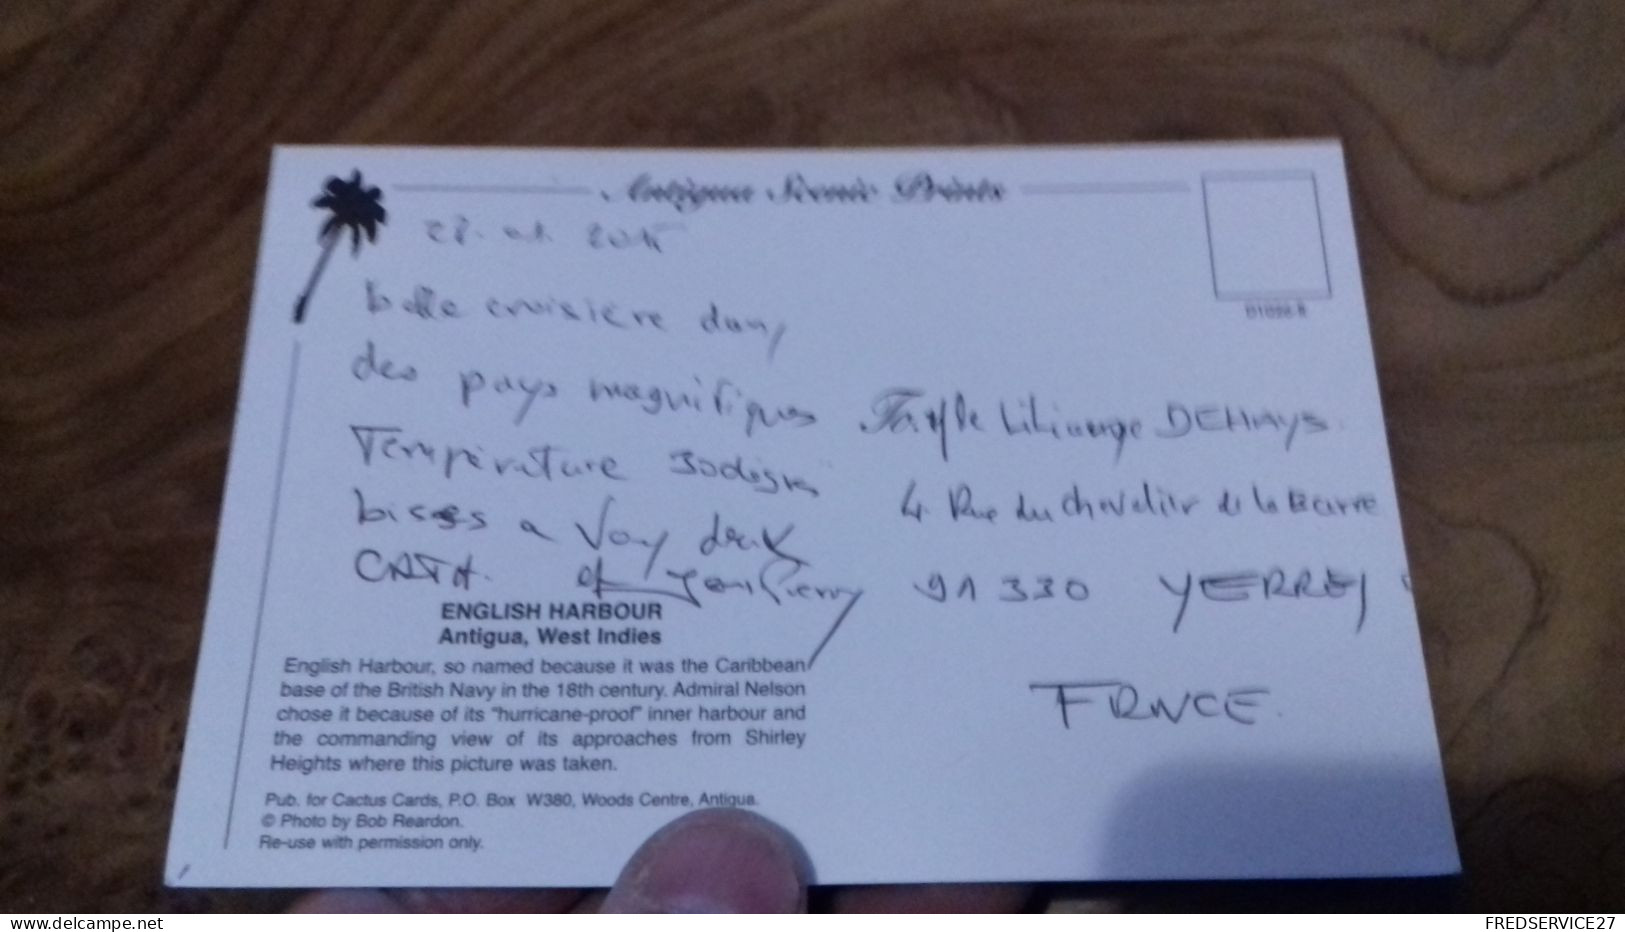 Antigua Scenic Prints
2015
D1088-R
belle croisière dans
des pays magnifiques
Température 30 degrés
bises a Vous deux
CATH. et Jean Pierre
Liliange DEHAYS
4 Rue du chevalier de la Barre
91 330 YERRES
FRNCE.
ENGLISH HARBOUR
Antigua, West Indies
English Harbour, so named because it was the Caribbean
base of the British Navy in the 18th century. Admiral Nelson
chose it because of its "hurricane-proof" inner harbour and
the commanding view of its approaches from Shirley
Heights where this picture was taken.
Pub. for Cactus Cards, P.O. Box W380, Woods Centre, Antigua.
© Photo by Bob Reardon.
Re-use with permission only.
delcampe.net
FREDSERVICE27